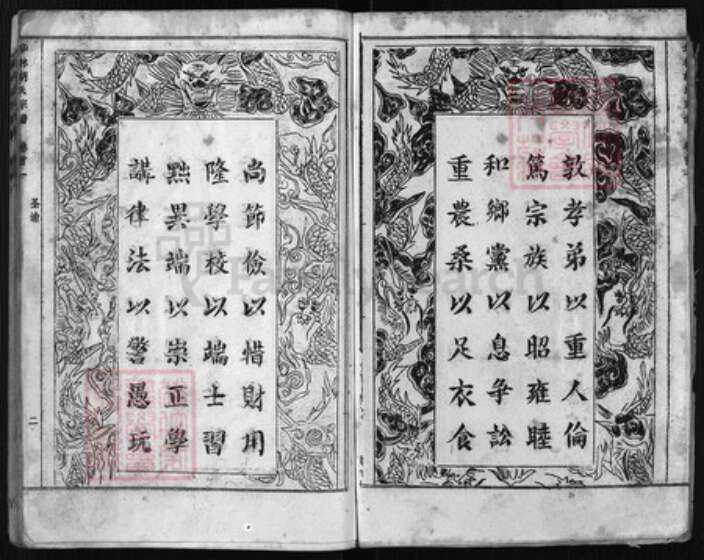 敦孝弟以重人倫
篤宗族以昭雍睦
和鄉黨以息爭訟
重農桑以足衣食
尚節儉以惜財用
隆學校以端士習
黜異端以崇正學
講律法以警愚玩
圣諭
二